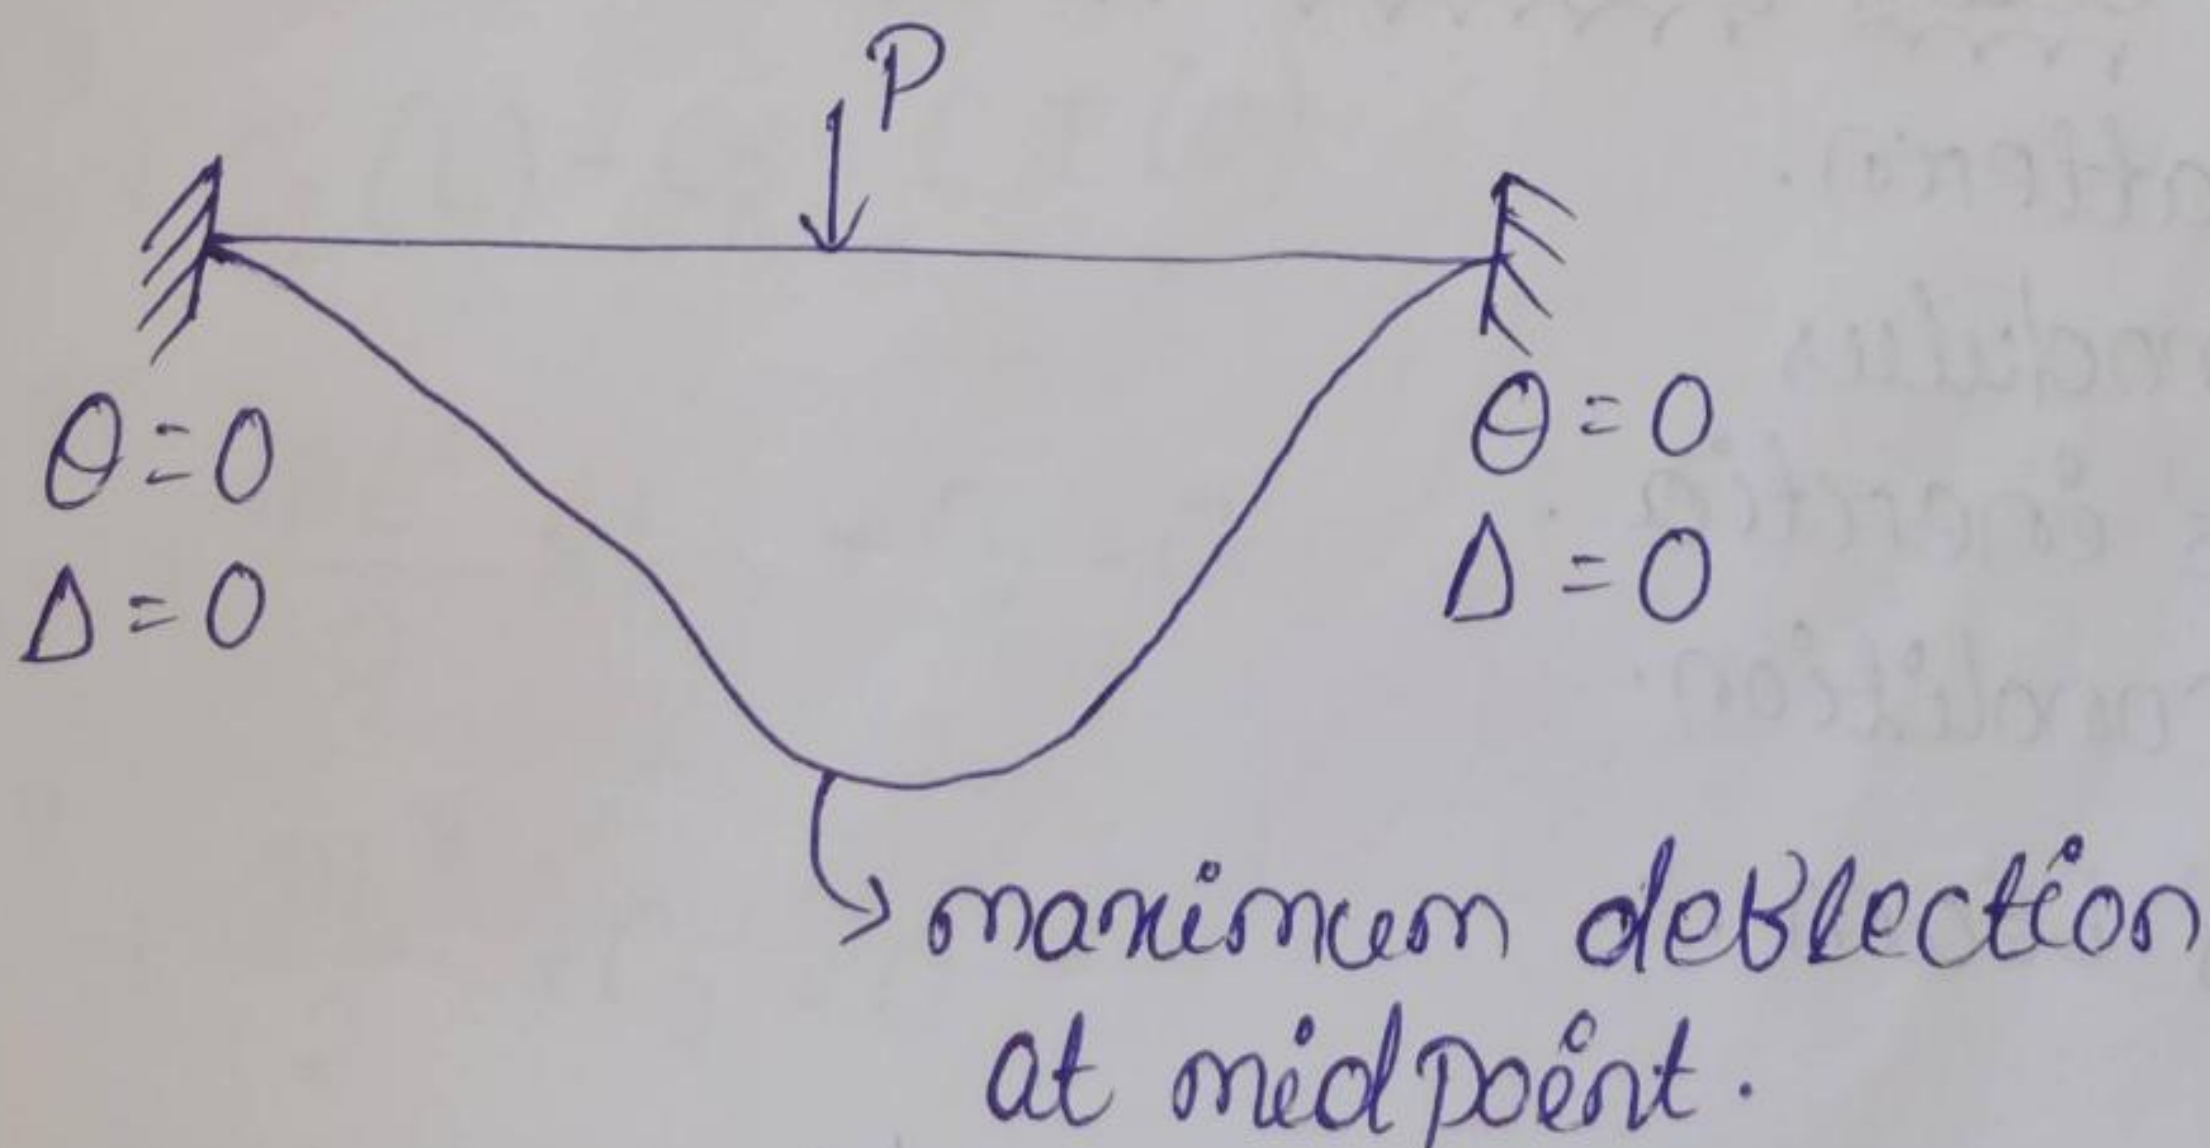 P
θ = 0
Δ = 0
θ = 0
Δ = 0
maximum deflection
at midpoint.